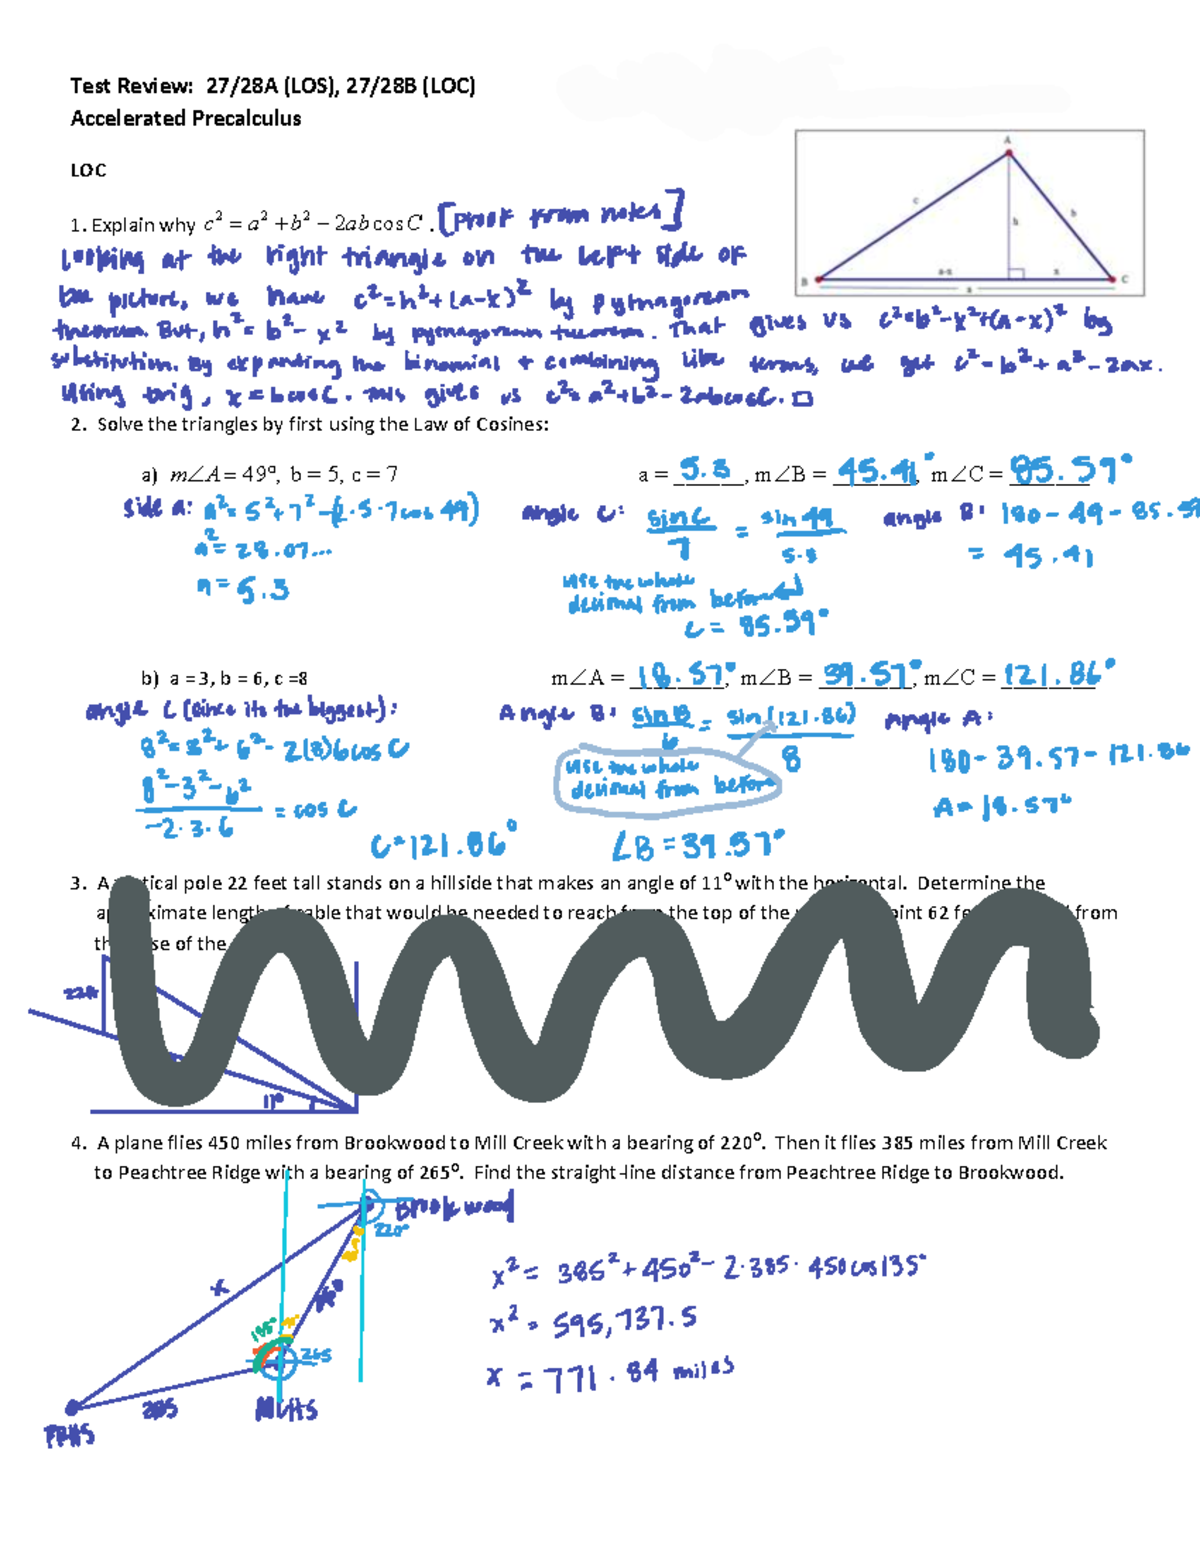 Test Review: 27/28A (LOS), 27/28B (LOC)
Accelerated Precalculus
LOC
A
c
b
h
B
a-x
x
C
a
1. Explain why c² = a² + b² − 2ab cos C. [Proof from notes]
Looking at the right triangle on the left side of
the picture, we have c² = h² + (a-x)² by pythagorean
theorem. But, h² = b² - x² by pythagorean theorem. That gives us c² = b² - x² + (a-x)² by
substitution. By expanding the binomial + combining like terms, we get c² = b² + a² - 2ax.
Using trig, x = b cos C. This gives us c² = a² + b² - 2abcosC. □
2. Solve the triangles by first using the Law of Cosines:
a) m∠A = 49°, b = 5, c = 7 a = 5.3, m∠B = 45.41°, m∠C = 85.59°
side a: a² = 5² + 7² - (2·5·7cos 49) angle C: sin C / 7 = sin 49 / 5.3 angle B: 180 - 49 - 85.59
a² = 28.07... = 45.41
a = 5.3 use the whole
decimal from before
C = 85.59°
b) a = 3, b = 6, c = 8 m∠A = 18.57°, m∠B = 39.57°, m∠C = 121.86°
angle C (since its the biggest): Angle B: sin B / 6 = sin(121.86) / 8 Angle A:
8² = 3² + 6² - 2(3)6cos C 180 - 39.57 - 121.86
8² - 3² - 6² / -2·3·6 = cos C use the whole
decimal from before A = 18.57°
C = 121.86° ∠B = 39.57°
3. A tical pole 22 feet tall stands on a hillside that makes an angle of 11° with the Determine the
length cable that would be needed to reach the top of the 62 from
of the
22ft
11°
4. A plane flies 450 miles from Brookwood to Mill Creek with a bearing of 220°. Then it flies 385 miles from Mill Creek
to Peachtree Ridge with a bearing of 265°. Find the straight-line distance from Peachtree Ridge to Brookwood.
Brookwood
220°
x
x² = 385² + 450² - 2·385·450cos135°
x² = 595,737.5
265
x = 771.84 miles
MCHS
PRHS